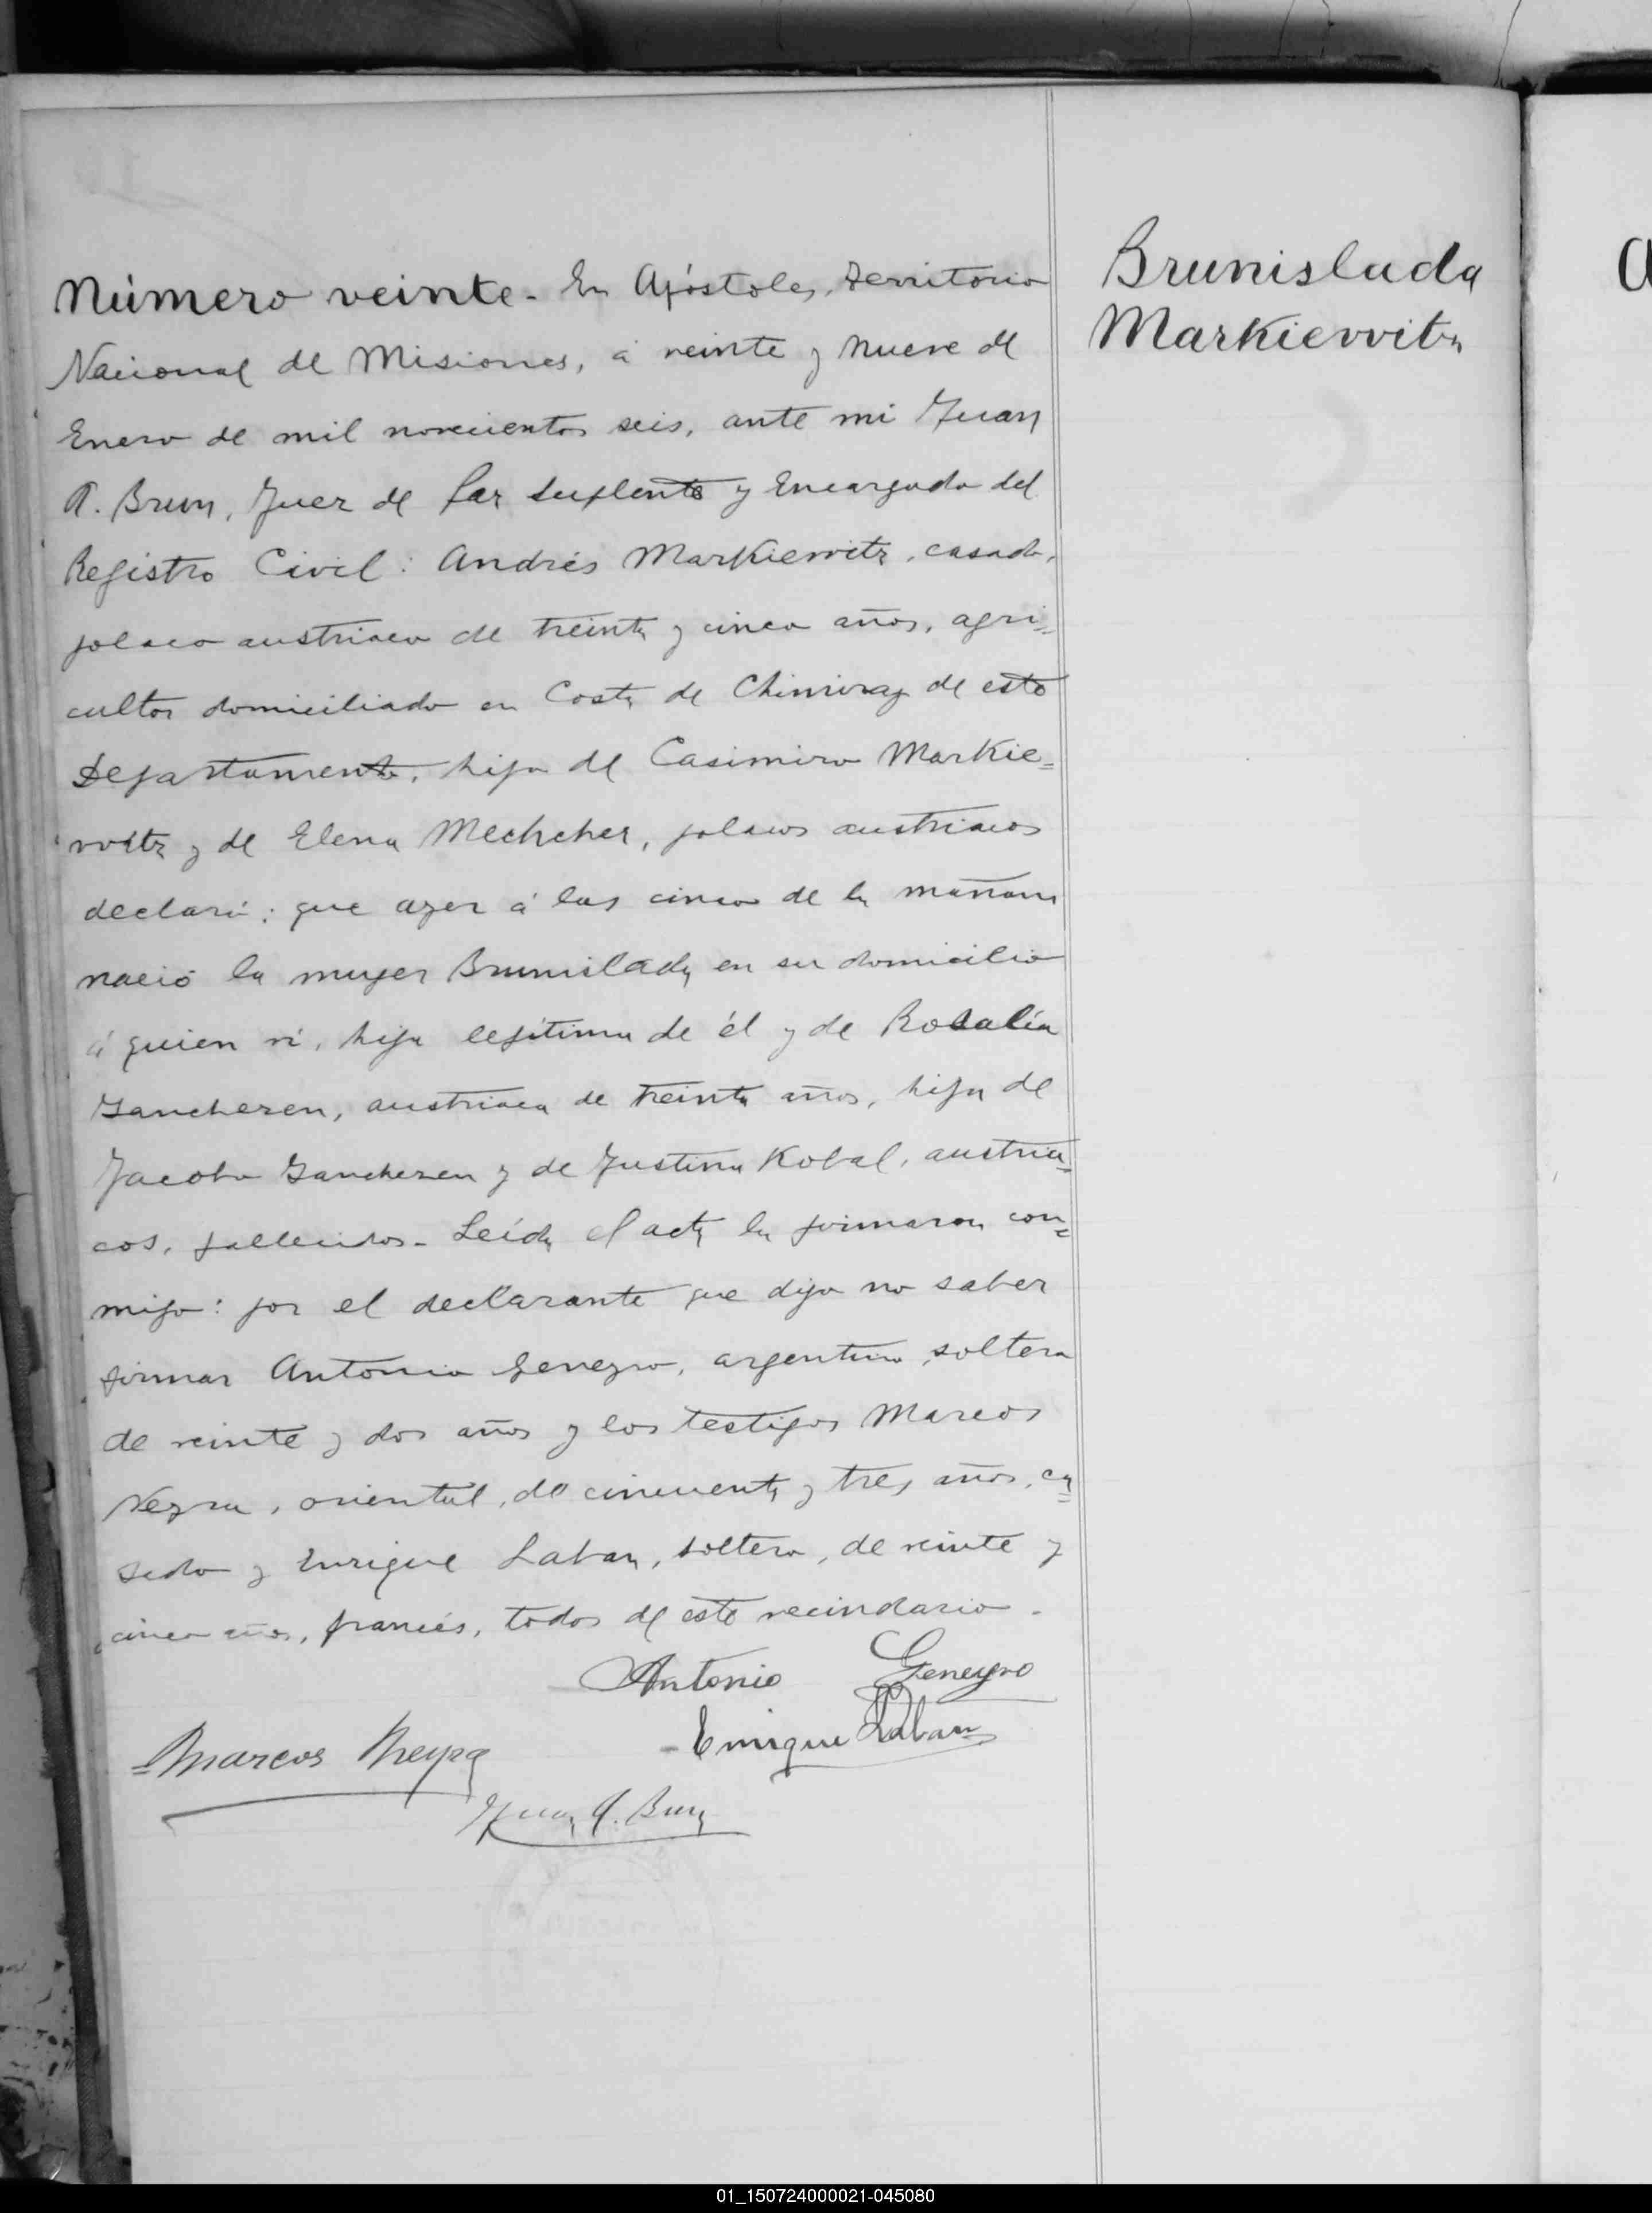 Número veinte - En Apóstoles, Territorio
Nacional de Misiones, á veinte y nueve de
Enero de mil novecientos seis, ante mi Juan
A. Brun, Juez de Paz Suplente y Encargado del
Registro Civil: Andrés Markievvitz, casado,
polaco austriaco de treinta y cinco años, agri=
cultor domiciliado en Costa de Chimiray de este
Departamento, hijo de Casimiro Markie=
vvitz y de Elena Mechcher, polacos austriacos
declaró: que ayer á las cinco de la mañana
nació la mujer Brunislada en su domicilio
á quien ví, hija legítima de él y de Rosalía
austriaca de treinta años, hija de
Jacobo y de Justina Kobal, austria=
cos, fallecidos - Leída el acta la firmaron con=
migo: por el declarante que dijo no saber
firmar Antonio Geneyro, argentino, soltero
de veinte y dos años y los testigos Marcos
Neyra, oriental, de cincuenta y tres años, ca=
sado y Enrique Laban, soltero, de veinte y
cinco años, francés, todos de este vecindario.
Antonio Geneyro
Enrique Laban
Marcos Neyra
Juan A. Brun
Brunislada
Markievvitz
01_150724000021-045080